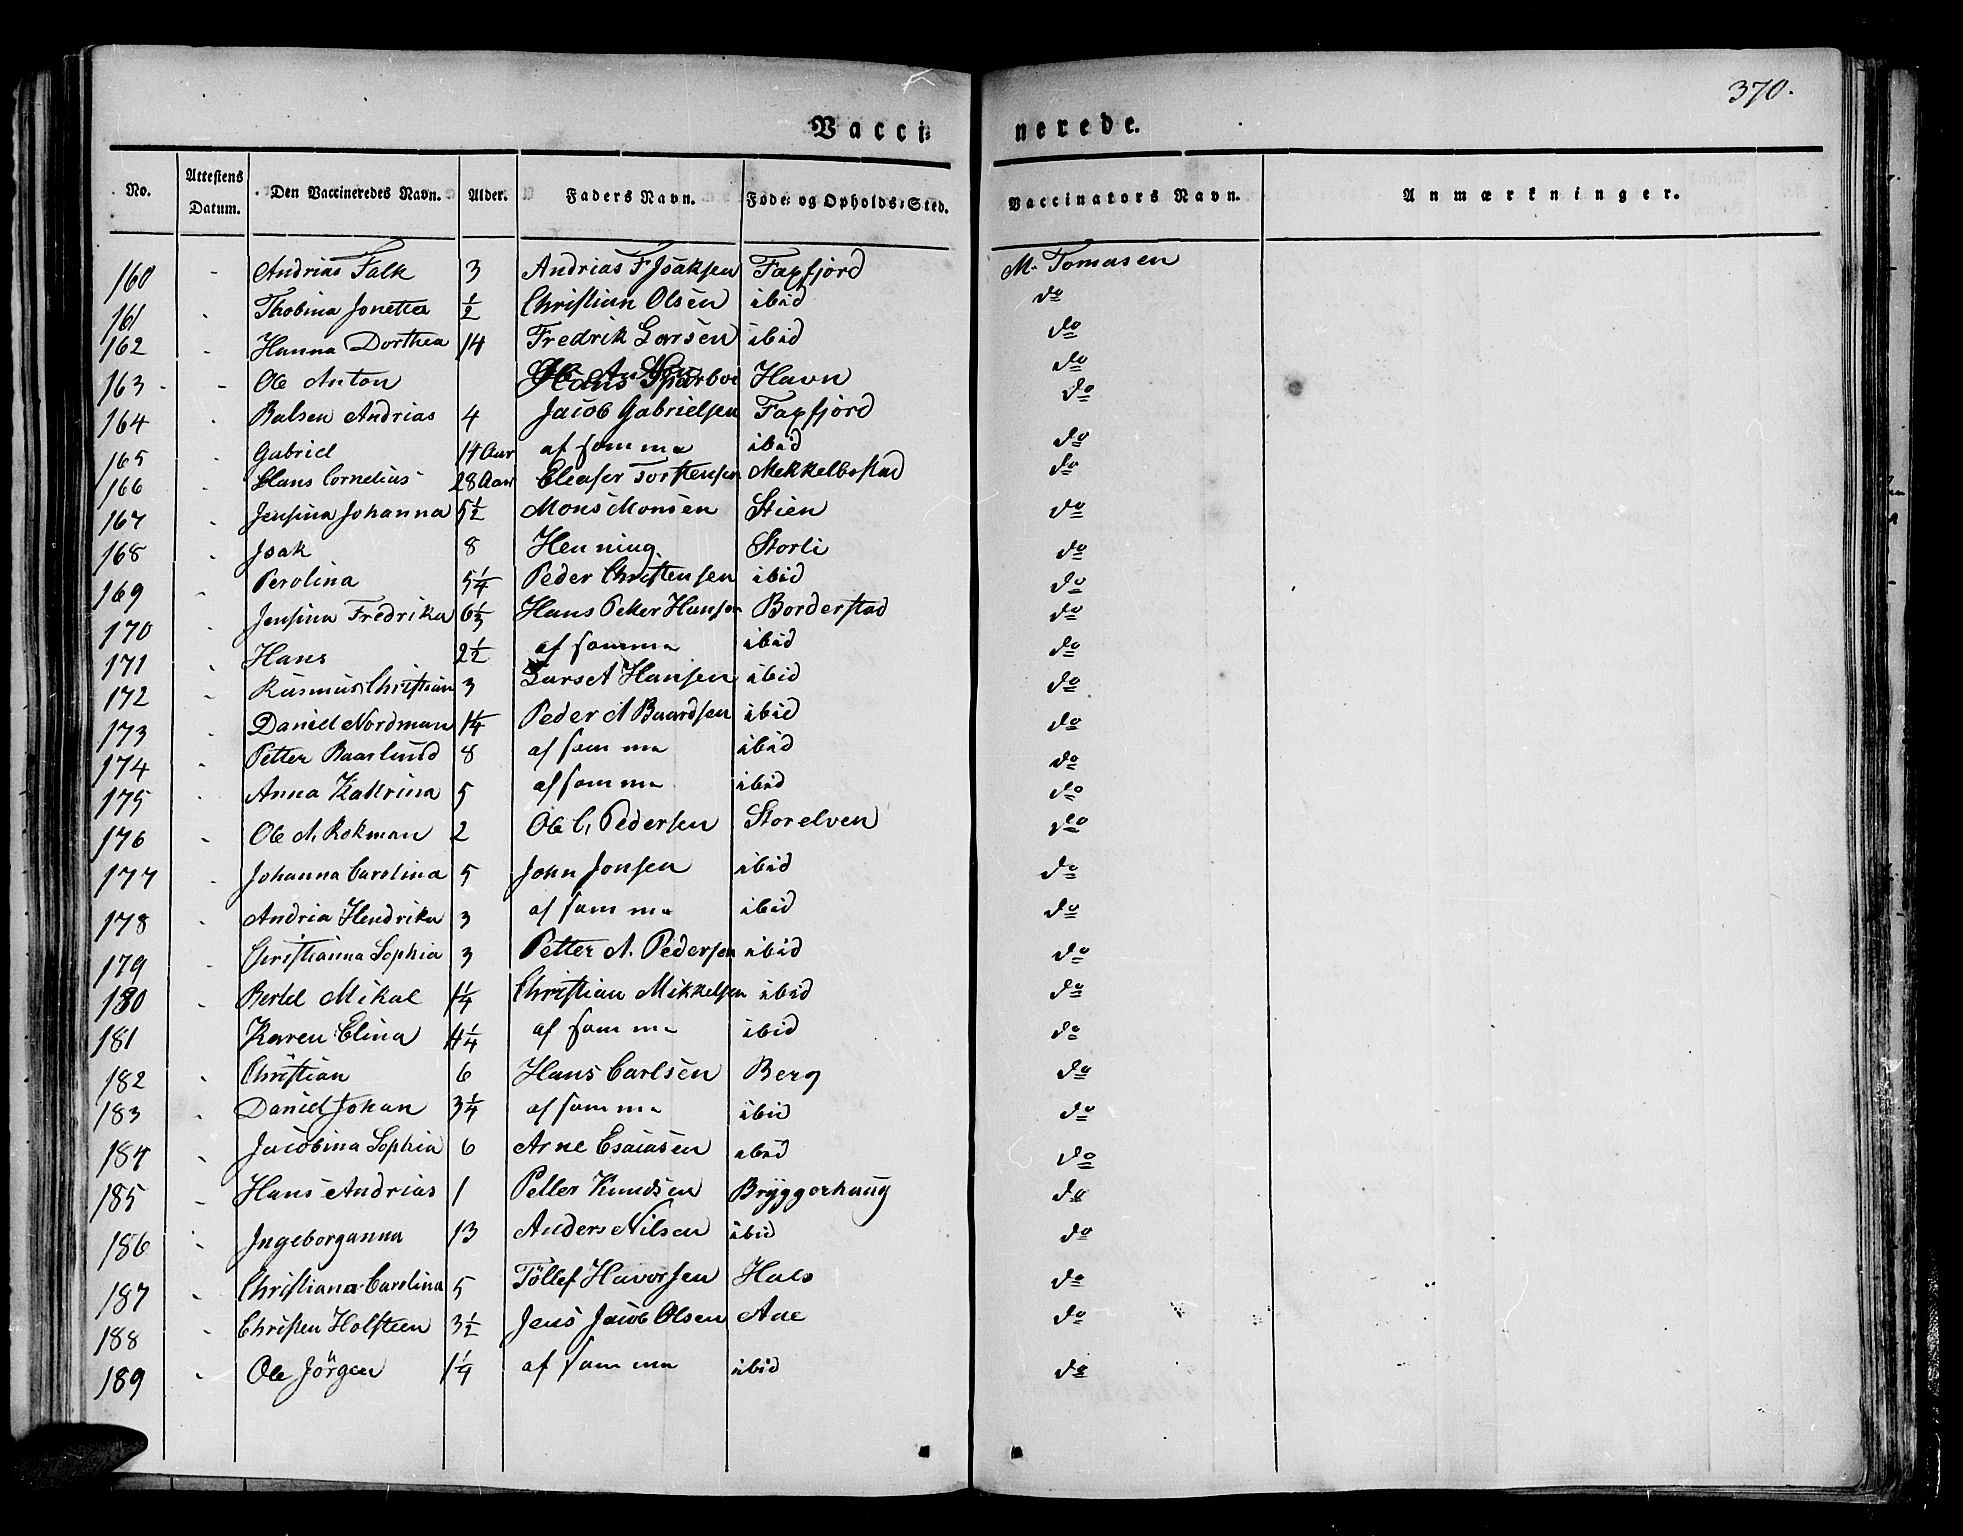 370.
Vacci= nerede.
No. Attestens Datum. Den Vaccineredes Navn. Alder. Faders Navn. Føde= og Opholds=Sted. Vaccinators Navn. Anmærkninger.
160 - Andrias Falk 3 Andrias F Isaksen Faxfjord M. Tomasen
161 - Thobina Jonetta ½ Christian Olsen ibid do
162 - Hanna Dorthea 14 Fredrik Larsen ibid do
163 - - Ole Anton Hans Havn do
do
164 - Balsen Andrias 4 Jacob Gabrielsen Faxfjord
165 - Gabriel 14 Aar af samma ibid do
166 - Hans Cornelius 28 Aar Eleaser Torstensen Mekkelbostad do
167 - Jensina Johanna 5½ Mons Monsen Stien do
168 - Isak 8 Henning Storli do
169 - Perolina 5¼ Peder Christensen ibid do
170 - Jensina Fredrika 6⅓ Hans Peker Hansen Borderstad do
171 - Hans 2½ af samma ibid do
172 - Rasmus Christian 3 Lars A Hansen ibid do
173 - Daniel Nordman 1¼ Peder A Baardsen ibid do
174 - Petter Baarlund 8 af samma ibid do
175 - Anna Katrina 5 af samma ibid do
176 - Ole A. Rokman 2 Ole C. Pedersen Storelven do
177 - Johanna Carolina 5 John Jonsen ibid do
178 - Andria Hendrika 3 af samma ibid do
179 - Christianna Sophia 3 Petter A. Pedersen ibid do
180 - Bertel Mikal 1¼ Christian Mikkelsen ibid do
181 Karen Elina 4¼ af samma ibid do
182 - Christian 6 Hans Carlsen Berg do
183 - Daniel Johan 3¼ af samma ibid do
184 - Jacobina Sophia 6 Arne Esaiasen ibid do
185 - Hans Andrias 1 Petter Knudsen Bryggerhaug do
186 - Ingeborganna 13 Anders Nilsen ibid do
187 - Christiana Carolina 5 Töllef Havorsen Hals do
188 - Christen Holsteen 3½ Jens Jacob Olsen Aae do
189 - Ole Jörgen 1¼ af samma ibid do